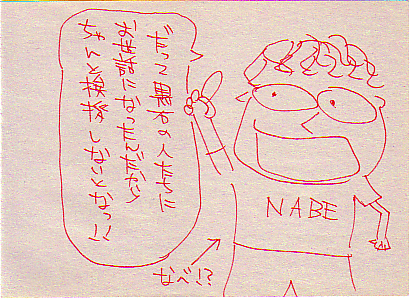 だって周りの人たちに
お世話になったんだから
ちゃんと挨拶しないとなっ!!
NABE
なべ!?